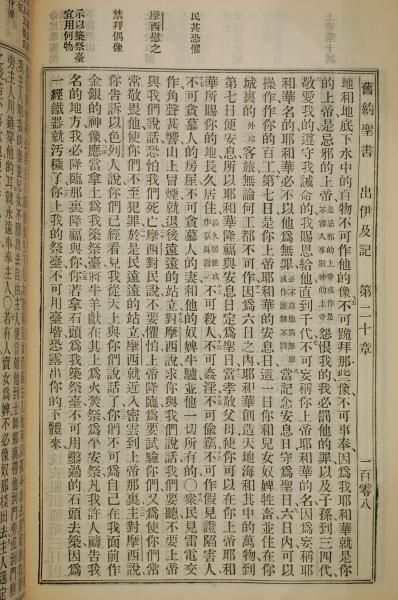 舊約聖書 出伊及記 第二十章 一百零八
地和地底下水中的百物不可作他的像不可跪拜那些像不可事奉因爲我耶和華就是你
的上帝是忌邪的上帝 怨恨我的我必罰他的罪以及子孫到三四代
敬愛我的遵守我誡命的我賜恩給他直到千代不可妄稱你上帝耶和華的名因爲妄稱耶
和華名的耶和華必不以他爲無罪 當記念安息日守爲聖日六日內可以
操作作你的百工第七日是你上帝耶和華的安息日這一日你和兒女奴婢牲畜並住在你
城裏的外邦客旅無論何工都不可作因爲六日之內耶和華創造天地海和其中的萬物到
第七日便安息所以耶和華降福與安息日定爲聖日當孝敬父母使你可以在你上帝耶和
華所賜你的地長久居住 不可殺人不可姦淫不可偷竊不可作假見證陷害人
不可貪慕人的房屋不可貪慕人的妻子他的奴婢牛驢並他一切所有的○衆民見雷電交
作角聲甚響山上冒烟就退後遠遠的站立對摩西說求你與我們說話我們要聽不要上帝
與我們說話恐怕我們死亡摩西對民說不要懼怕上帝降臨爲要試驗你們又爲使你們常
常敬畏他使你們不至犯罪於是民遠遠的站立摩西就近入密雲到上帝那裏主對摩西說
你告訴以色列人說你們已經看見我從天上與你們說話了你們不可爲自己在我面前作
金銀的神像應當拿土爲我築祭臺將牛羊獻在其上爲火焚祭爲平安祭凡我許人禱告我
名的地方我必降臨那裏降福與你你若拿石頭爲我築祭臺不可用鑿過的石頭去築因爲
一經鐵器就汚穢了你上我的祭臺不可用臺堦恐露出你的下體來
民甚恐懼
摩西慰之
禁拜偶像
示以築祭臺
宜用何物